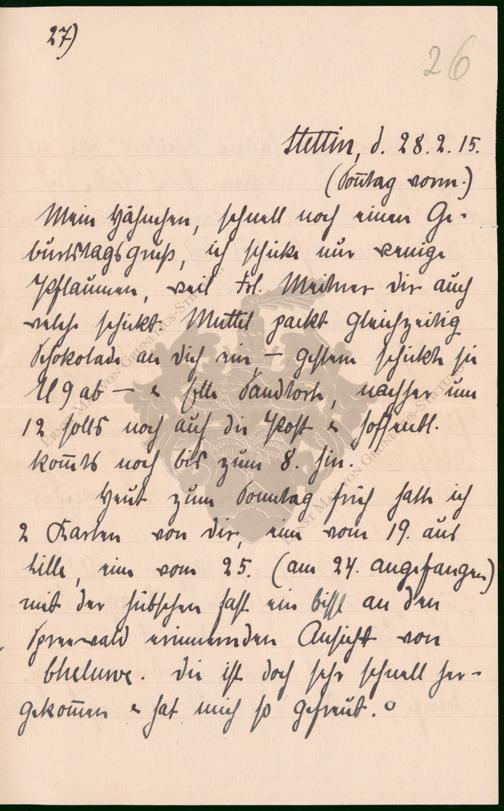 27)
26
Stettin, d. 28.2.15.
(Sonntag vorm.)
Mein Hähnchen, schnell noch einen Ge-
burtstagsgruß, ich schicke nur wenige
Pflaumen, weil Frl. Meitner dir auch
welche schickt. Muttel packt gleichzeitig
Schokolade an Dich ein – gestern schickte sie
N 9 ab – & Sandtorte, nachher um
12 solls noch auf die Post & hoffentl.
kom̄ts noch bis zum 8. hin.
Heut zum Sonntag früh hatte ich
2 Karten von dir, eine vom 19. aus
Lille, eine vom 25. (am 24. angefangen)
mit der hübschen fast ein bissl an den
Spreewald erinnernden Ansicht von
. die ist doch sehr schnell her-
gekom̄en & hat mich so gefreut.